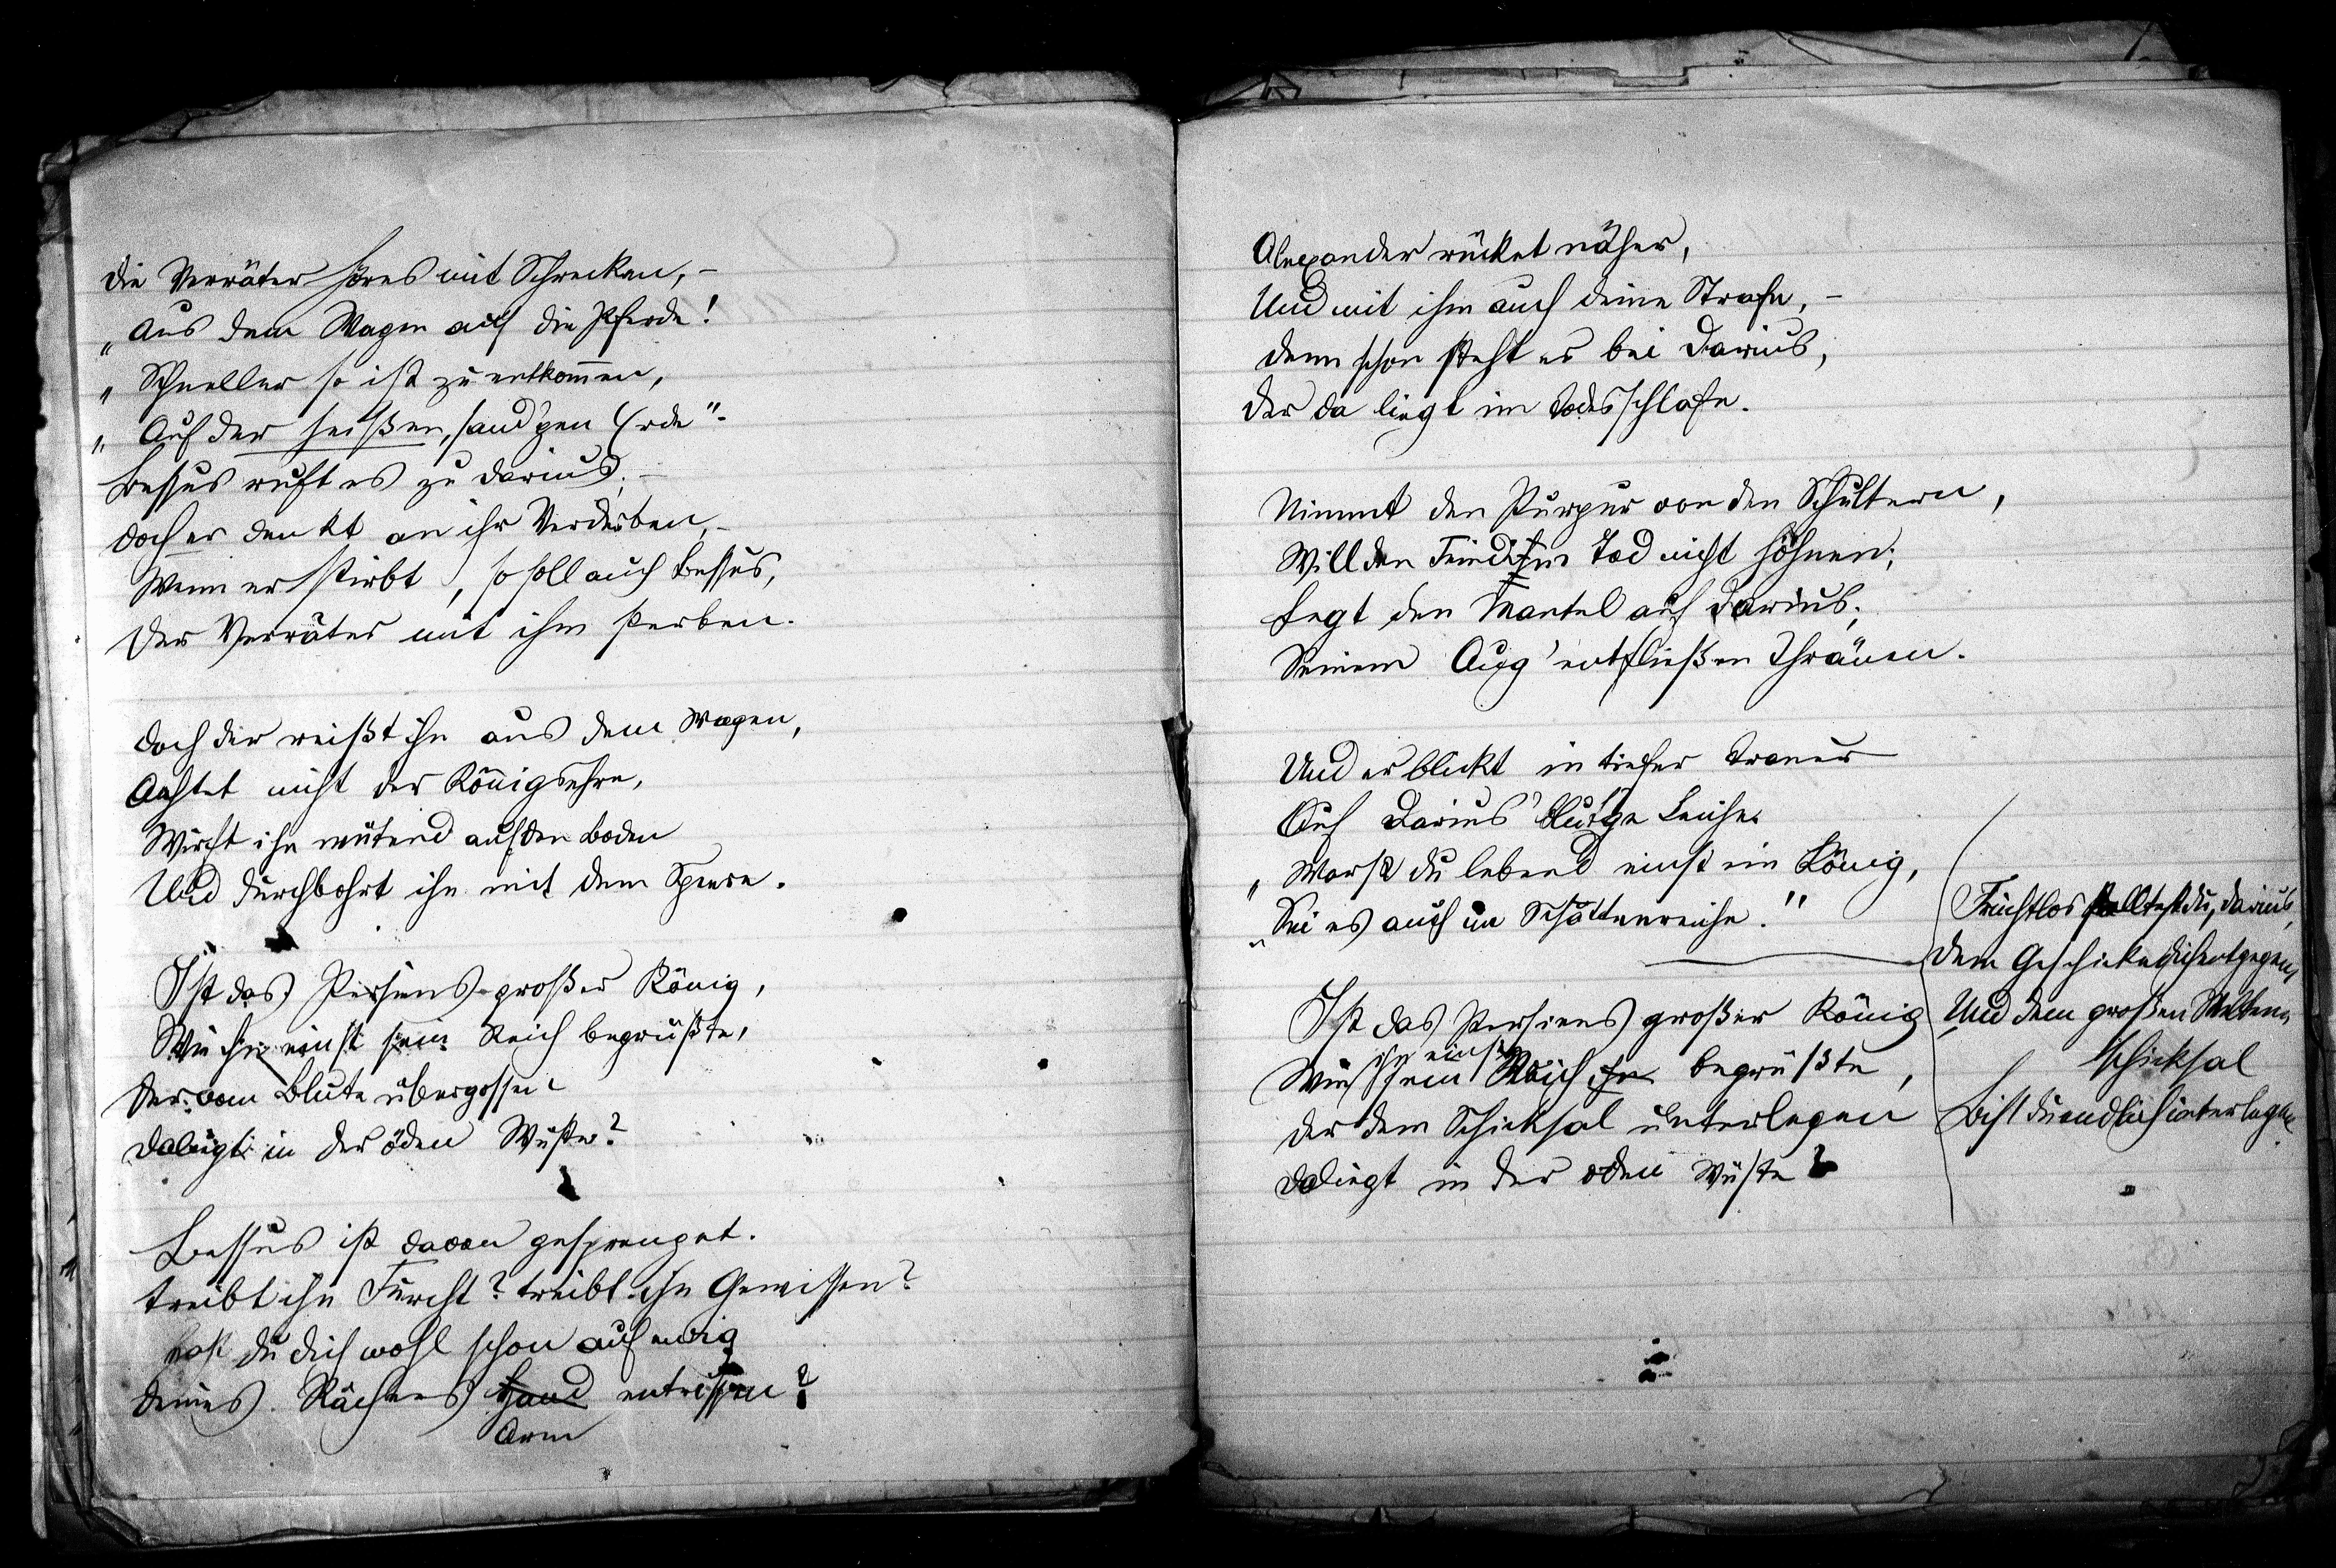 Die Verräter hörens mit Schrecken, –
„Aus dem Wagen auf die Pferde!
„Schneller so ist zu entkom̅en,
„Auf der heißen, sand'gen Erde“ –
Bessus ruft es zu Darius; –
Doch er denkt an ihr Verderben, –
Wenn er stirbt, so soll auch Bessus,
Der Verräter mit ihm sterben.
Doch der reißt ihn aus dem Wagen,
Achtet nicht der Königsehre,
Wirft ihn wütend auf den Boden
Und durchbohrt ihn mit dem Speere.
Ist das Persiens großer König,
Wie ihn einst sein Reich begrüßte,
Der vom Blute übergossen
Daliegt in der öden Wüste?
Bessus ist davon gesprenget.
Treibt ihn Furcht? treibt ihn Gewissen?
Hast du dich wohl schon auf ewig
Deines Rächers Hand entrissen?
Arm
Alexander rücket näher,
Und mit ihm auch deine Strafe, –
Denn schon steht er bei Darius,
Der da liegt im Todesschlafe.
Nimmt den Purpur von den Schultern,
Will den Feind im Tod nicht höhnen;
Legt den Mantel auf Darius;
Seinem Aug' entfließen Thränen.
Und er blickt in tiefer Trauer
Auf Darius' blut'ge Leiche.
„Warst du lebend einst ein König,
„Sei es auch im Schattenreiche.“
Ist das Persiens großer König
Wie ihn einst sein Reich ihn begrüßte,
Der dem Schicksal unterlegen
Daliegt in der öden Wüste?
Fruchtlos stelltest du, Darius,
Dem Geschicke dich entgegen,
Und dem großen Welten
schicksal
Bist du endlich unterlegen